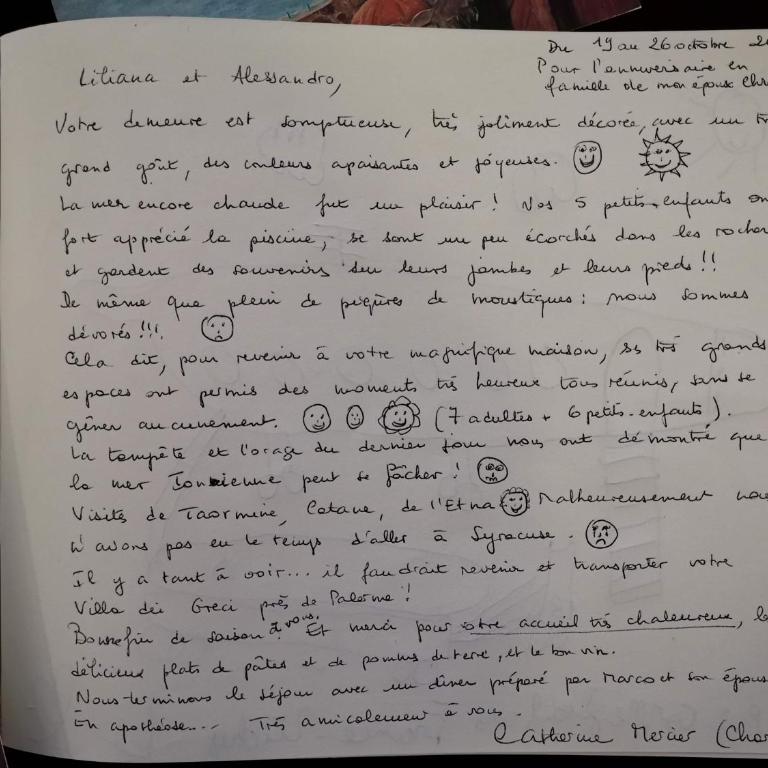 Du 19 au 26 octobre
Pour l'anniversaire en
famille de mon époux
Liliana et Alessandro,
Votre demeure est somptueuse, très joliment décorée, avec un
grand goût, des couleurs apaisantes et joyeuses.
La mer encore chaude fut un plaisir ! Nos 5 petits-enfants
fort apprécié la piscine, se sont un peu écorchés dans les
et gardent des souvenirs sur leurs jambes et leurs pieds !!
De même que plein de piqûres de moustiques : nous sommes
dévorés !!!.
Cela dit, pour revenir à votre magnifique maison, ses très grands
espaces ont permis des moments très heureux tous réunis, sans se
gêner aucunement. (7 adultes + 6 petits-enfants).
La tempête et l'orage du dernier jour nous ont démontré que
la mer Ionienne peut se fâcher !
Visites de Taormine, Catane, de l'Etna Malheureusement
n'avons pas eu le temps d'aller à Syracuse.
Il y a tant à voir... il faudrait revenir et transporter votre
Villa dei Greci près de Palerme !
Bonne fin de saison à vous. Et merci pour votre accueil très chaleureux,
délicieux plats de pâtes et de pommes de terre, et le bon vin.
Nous terminons le séjour avec un dîner préparé par Marco et son
En apothéose.... Très amicalement à vous.
Catherine Mercier